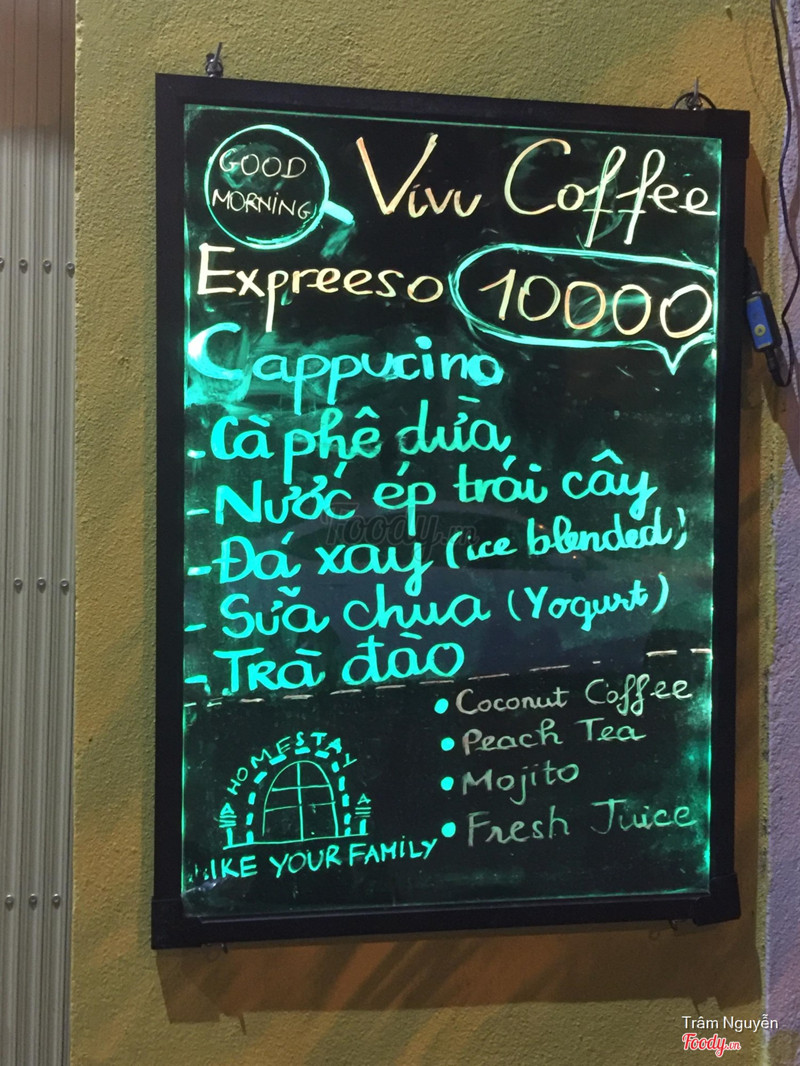 GOOD
MORNING
Vivu Coffee
Expreeso 10000
Cappucino
- Cà phê dừa
- Nước ép trái cây
- Đá xay (ice blended)
- Sữa chua (Yogurt)
- Trà đào
• Coconut Coffee
• Peach Tea
• Mojito
• Fresh Juice
HOMESTAY
LIKE YOUR FAMILY
Foody.vn
Trâm Nguyễn
Foody.vn